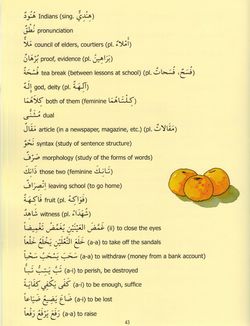 هُنُودٌ Indians (sing. هِنْدِيٌّ)
نُطْقٌ pronunciation
مَلَأٌ council of elders, courtiers (pl. أَمْلَاءٌ)
بُرْهَانٌ proof, evidence (pl. بَرَاهِينُ)
فُسْحَةٌ tea break (between lessons at school) (pl. فُسَحٌ، فُسْحَاتٌ)
إِلَهٌ god, deity (pl. آلِهَةٌ)
كِلَاهُمَا both of them (feminine كِلْتَاهُمَا)
مُثَنًّى dual
مَقَالٌ article (in a newspaper, magazine, etc.) (pl. مَقَالَاتٌ)
نَحْوٌ syntax (study of sentence structure)
صَرْفٌ morphology (study of the forms of words)
ذَانِكَ those two (feminine تَانِكَ)
اِنْصِرَافٌ leaving school (to go home)
فَاكِهَةٌ fruit (pl. فَوَاكِهُ)
شَاهِدٌ witness (pl. شُهَدَاءُ)
غَمَّضَ العَيْنَيْنِ يُغَمِّضُ تَغْمِيضاً (ii) to close the eyes
خَلَعَ النَّعْلَيْنِ يَخْلَعُ خَلْعاً (a-a) to take off the sandals
سَحَبَ يَسْحَبُ سَحْباً (a-a) to withdraw (money from a bank account)
تَبَّ يَتِبُّ تَبّاً (a-i) to perish, be destroyed
كَفَى يَكْفِي كِفَايَةً (a-i) to be enough, suffice
ضَاعَ يَضِيعُ ضَيَاعاً (a-i) to be lost
رَفَعَ يَرْفَعُ رَفْعاً (a-a) to raise
43